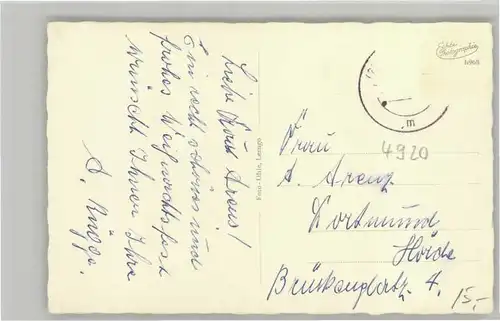 Liebe Frau Arens!
Ein recht schönes und
frohes Weihnachtsfest
wünscht Ihnen Ihre
A. Rügge.
Foto-Uhle, Lemgo
Echte
Photographie
m
4920
Frau
A. Arenz
Dortmund
Hörde
4.
15,-